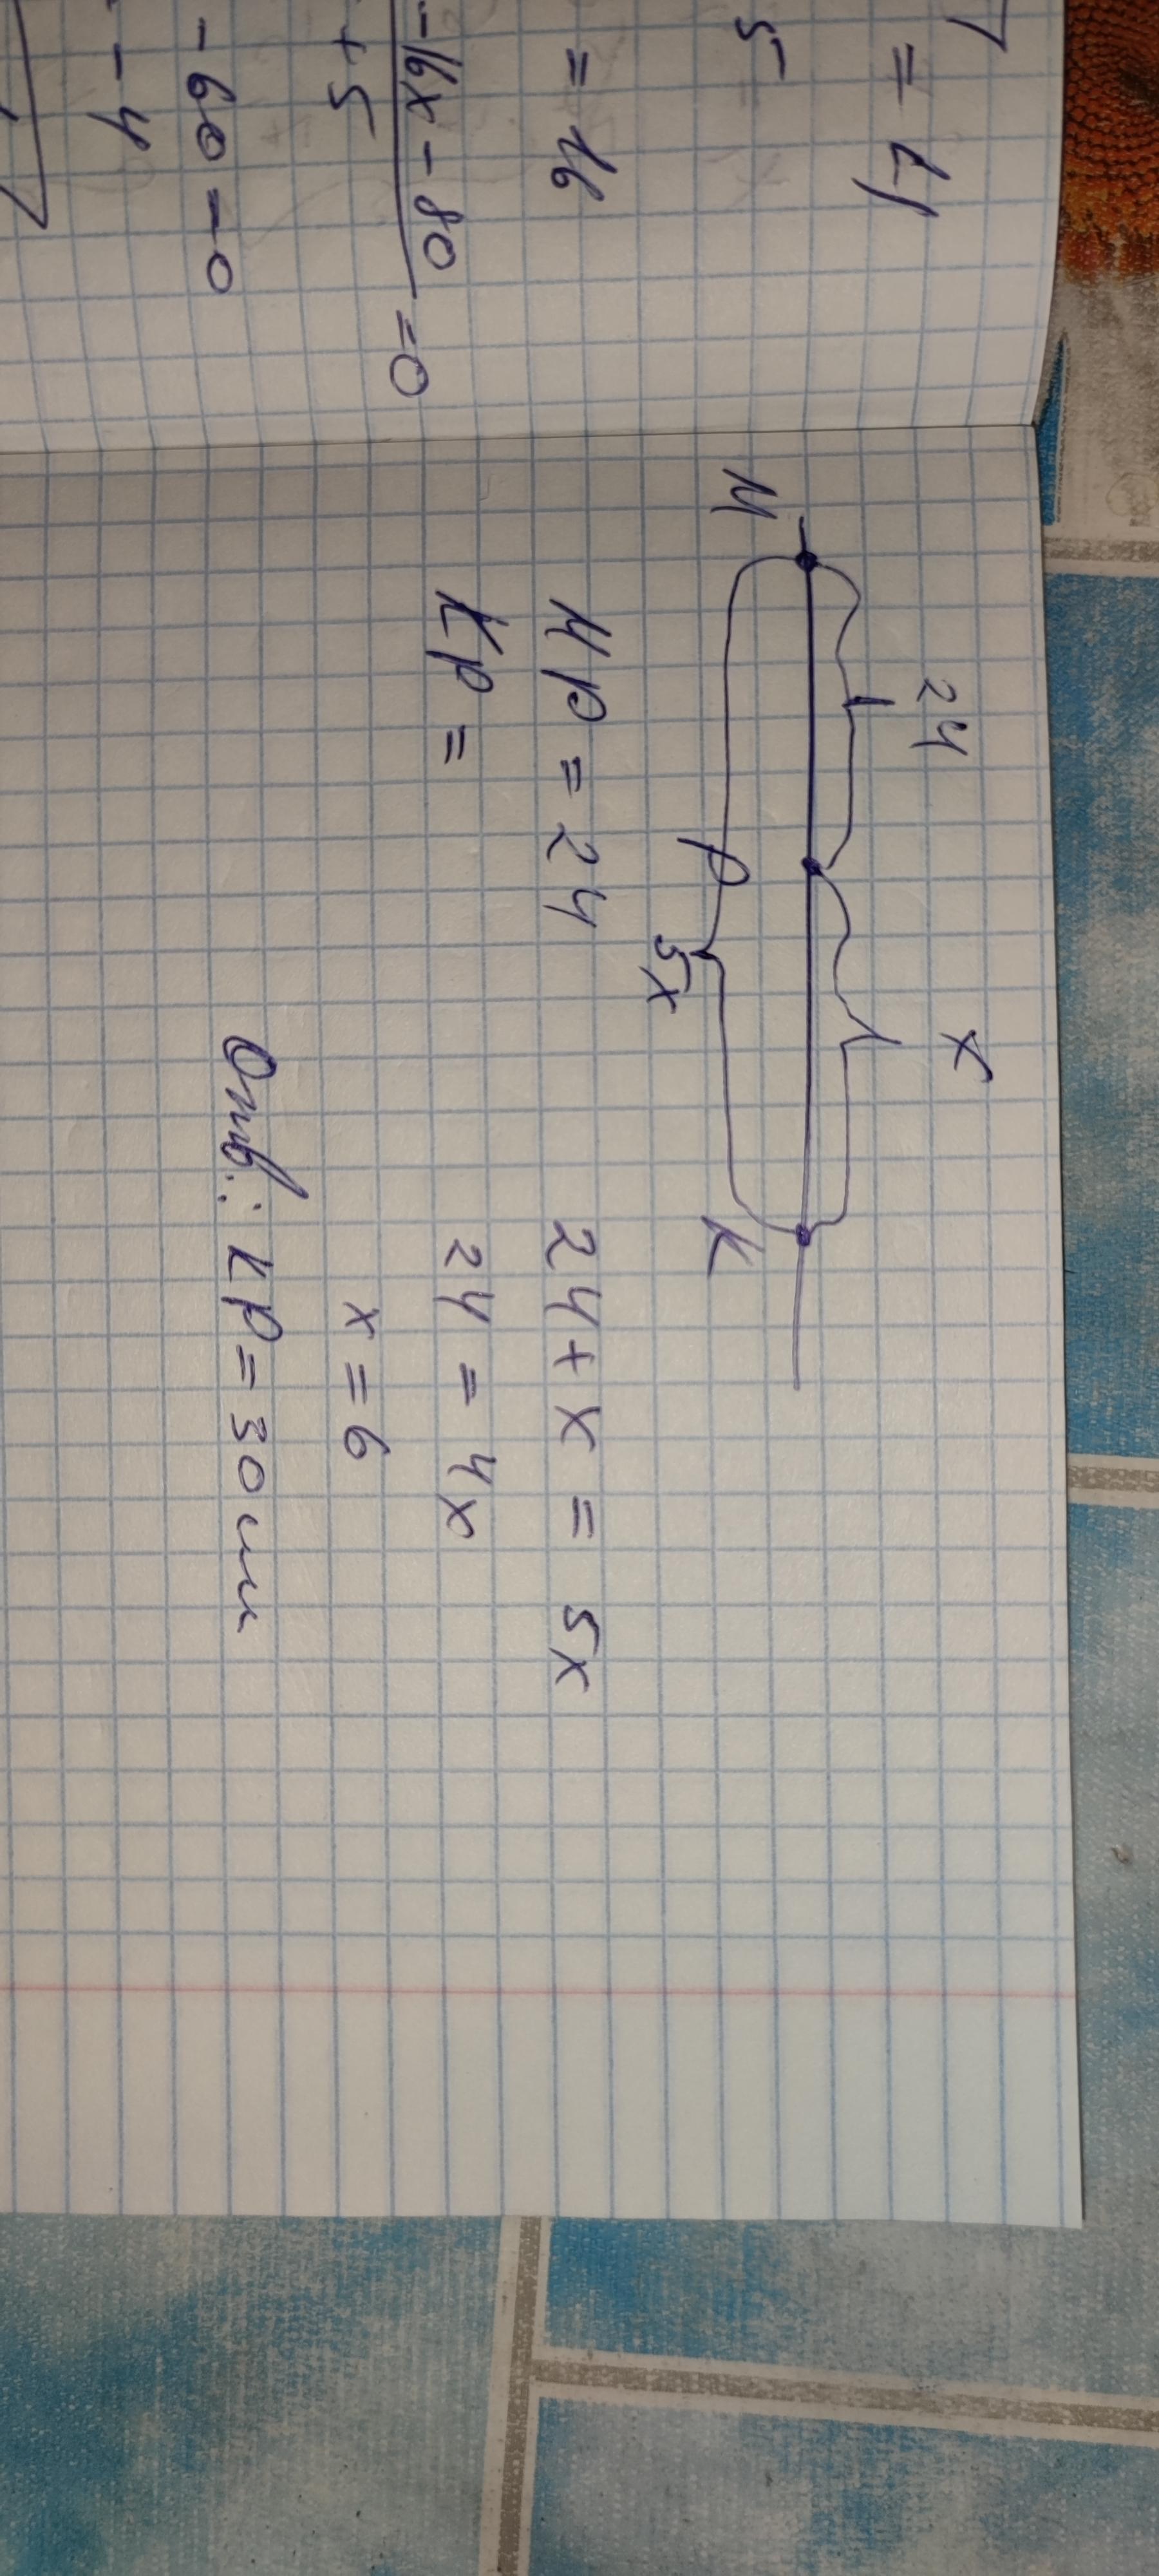 = 4
5
= 16
-16x - 80 = 0
+ 5
- 60 = 0
- 4
24 x
M P K
5x
MP = 24 24 + x = 5x
KP = 24 = 4x
x = 6
Отв.: KP = 30 см